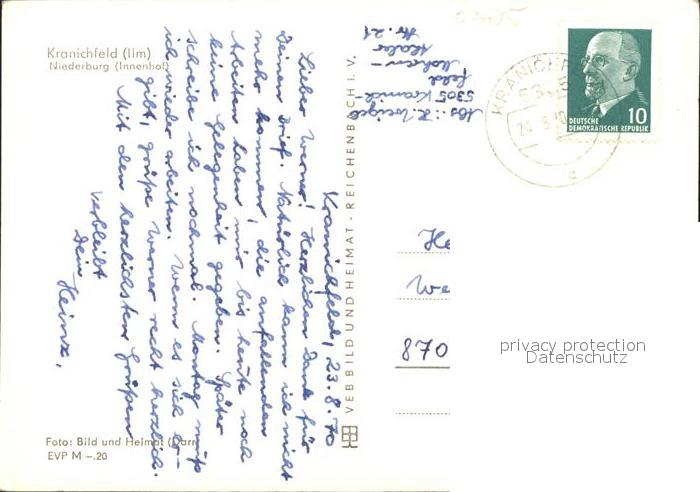 Kranichfeld (Ilm)
Niederburg (Innenhof)
Kranichfeld, 23.8.70
Lieber Werner! Herzlichen Dank für
Deinen Brief. Natürlich kann ich nicht
mehr kommen, die anfallenden
Arbeiten haben mir bis heute noch
keine Gelegenheit gegeben. Später
schreibe ich nochmal. Montag muß
ich wieder arbeiten. Wenn es sich er-
gibt, grüße Werner recht herzlich.
Mit den herzlichsten Grüßen
verbleibt
Dein Heinz,
Foto: Bild und Heimat (Darr)
EVP M –.20
VEB BILD UND HEIMAT · REICHENBACH I. V.
Abs.: H.
5305 Kranich-
feld
Nr. 21
KRANICHF
530
24. 8. 70
c
10
DEUTSCHE
DEMOKRATISCHE REPUBLIK
He
We
870
privacy protection
Datenschutz